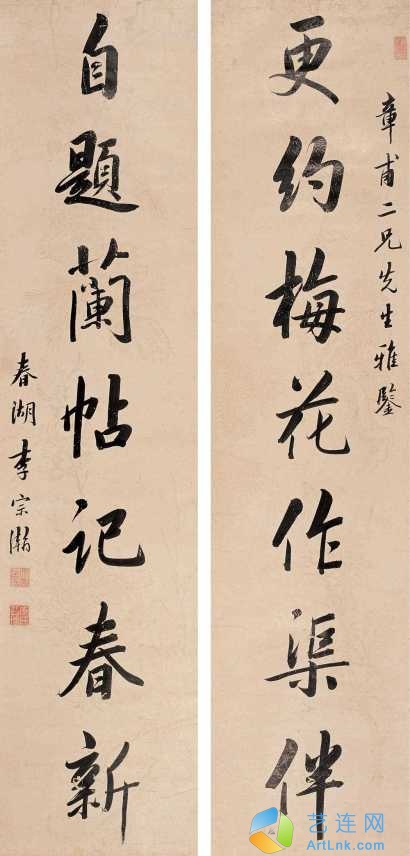 章甫二兄先生雅鑒
更约梅花作渠伴
自題蘭帖记春新
春湖李宗瀚
艺连网
ArtLink.com